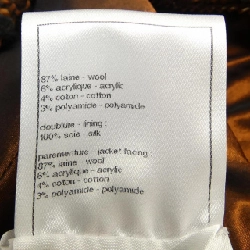 87% laine - wool
6% acrylique - acrylic
4% coton - cotton
3% polyamide - polyamide
doublure - lining :
100% soie - silk
parementure - jacket facing
87% laine - wool
6% acrylique - acrylic
4% coton - cotton
3% polyamide - polyamide